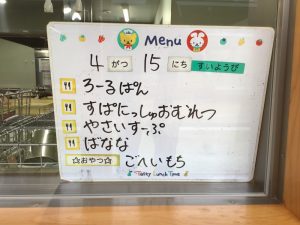 Menu
4 がつ 15 にち すいようび
ろーるぱん
すぱにっしゅおむれつ
やさいすーぷ
ばなな
☆おやつ☆ ごへいもち
Tasty Lunch Time